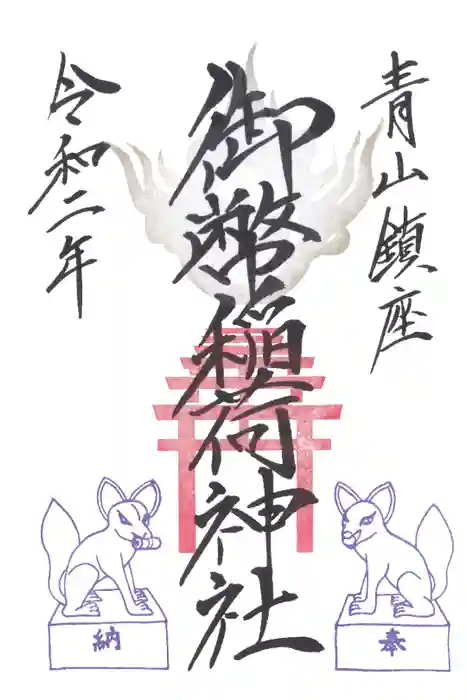 青山鎮座
御幣稲荷神社
令和二年
奉
納